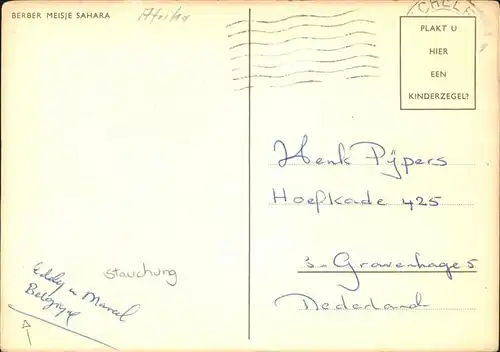 BERBER MEISJE SAHARA
Afrika
CHELLE
PLAKT U
HIER
EEN
KINDERZEGEL?
Henk Pijpers
Hoefkade 425
's-Gravenhage 5
Nederland
stauchung
Eddy u Marcel
Belgique